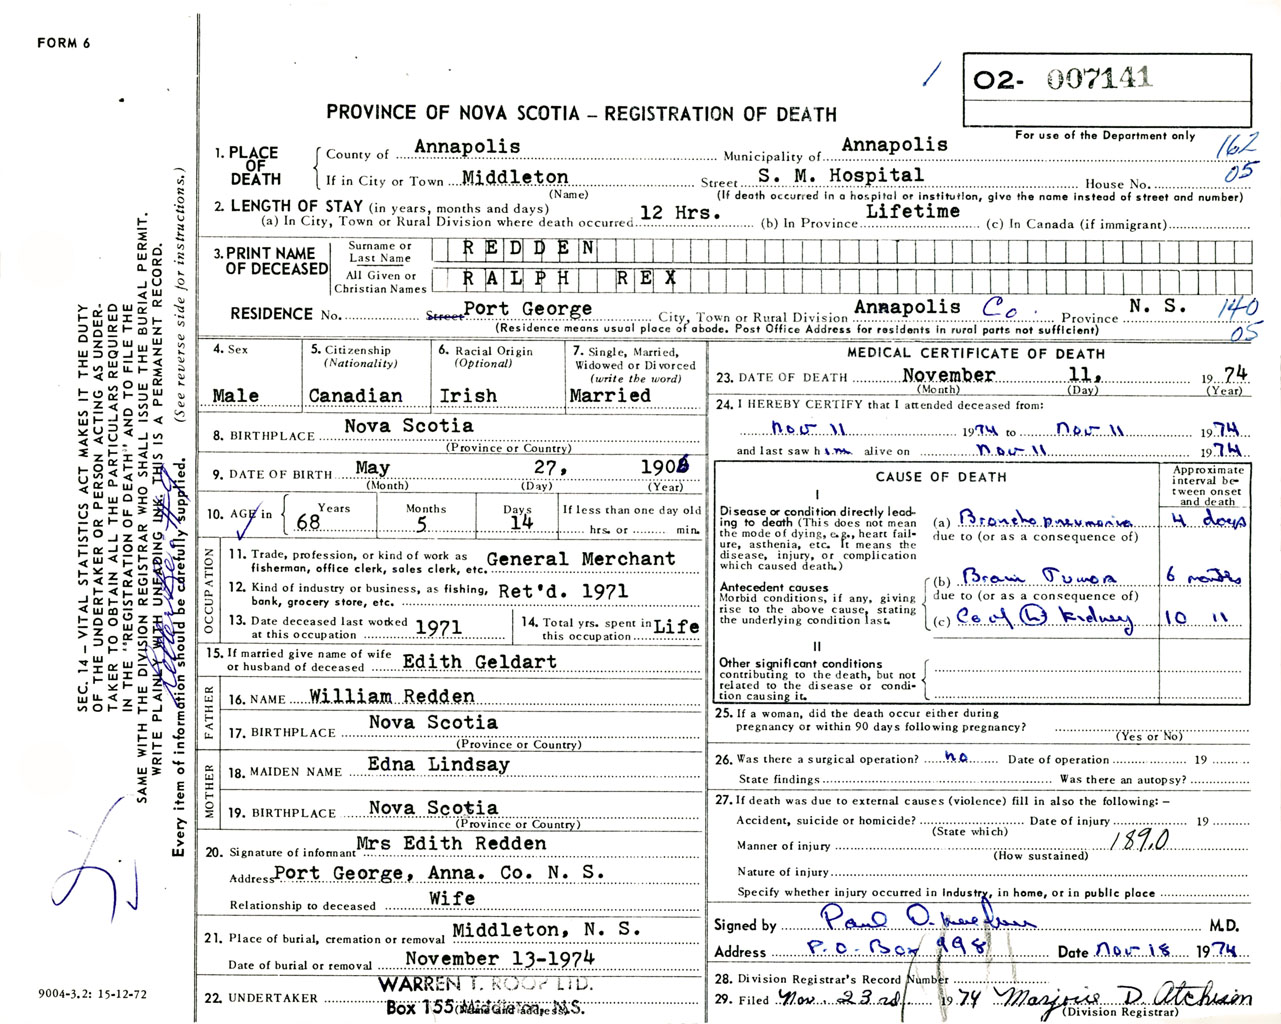 FORM 6
02- 007141
PROVINCE OF NOVA SCOTIA – REGISTRATION OF DEATH
For use of the Department only
162
05
1. PLACE OF DEATH
County of Annapolis Municipality of Annapolis
If in City or Town Middleton Street S. M. Hospital House No.
(Name) (If death occurred in a hospital or institution, give the name instead of street and number)
2. LENGTH OF STAY (in years, months and days)
(a) In City, Town or Rural Division where death occurred 12 Hrs. (b) In Province Lifetime (c) In Canada (if immigrant)
3. PRINT NAME OF DECEASED
Surname or Last Name REDDEN
All Given or Christian Names RALPH REX
RESIDENCE No. Street Port George City, Town or Rural Division Annapolis Co. Province N. S.
(Residence means usual place of abode. Post Office Address for residents in rural parts not sufficient)
140
05
4. Sex
Male
5. Citizenship
(Nationality)
Canadian
6. Racial Origin
(Optional)
Irish
7. Single, Married, Widowed or Divorced
(write the word)
Married
8. BIRTHPLACE Nova Scotia
(Province or Country)
9. DATE OF BIRTH May 27, 1906
(Month) (Day) (Year)
10. AGE in Years Months Days If less than one day old
68 5 14 hrs. or min.
OCCUPATION
11. Trade, profession, or kind of work as General Merchant
fisherman, office clerk, sales clerk, etc.
12. Kind of industry or business, as fishing, Ret'd. 1971
bank, grocery store, etc.
13. Date deceased last worked at this occupation 1971
14. Total yrs. spent in this occupation Life
15. If married give name of wife or husband of deceased Edith Geldart
FATHER
16. NAME William Redden
17. BIRTHPLACE Nova Scotia
(Province or Country)
MOTHER
18. MAIDEN NAME Edna Lindsay
19. BIRTHPLACE Nova Scotia
(Province or Country)
20. Signature of informant Mrs Edith Redden
Address Port George, Anna. Co. N. S.
Relationship to deceased Wife
21. Place of burial, cremation or removal Middleton, N. S.
Date of burial or removal November 13-1974
22. UNDERTAKER WARREN T. ROOP LTD.
Box 155 Middleton, N.S.
(Name and address)
MEDICAL CERTIFICATE OF DEATH
23. DATE OF DEATH November 11, 1974
(Month) (Day) (Year)
24. I HEREBY CERTIFY that I attended deceased from:
Nov 11 1974 to Nov 11 1974
and last saw him alive on Nov 11 1974
CAUSE OF DEATH
Approximate interval between onset and death
I
Disease or condition directly leading to death (This does not mean the mode of dying, e.g., heart failure, asthenia, etc. It means the disease, injury, or complication which caused death.)
(a) Bronchopneumonia 4 days
due to (or as a consequence of)
Antecedent causes
Morbid conditions, if any, giving rise to the above cause, stating the underlying condition last.
(b) Brain Tumor 6 months
due to (or as a consequence of)
(c) Ca of (L) Kidney 10 "
II
Other significant conditions contributing to the death, but not related to the disease or condition causing it.
25. If a woman, did the death occur either during pregnancy or within 90 days following pregnancy?
(Yes or No)
26. Was there a surgical operation? no Date of operation 19
State findings Was there an autopsy?
27. If death was due to external causes (violence) fill in also the following: –
Accident, suicide or homicide? Date of injury 19
(State which)
Manner of injury 189.0
(How sustained)
Nature of injury
Specify whether injury occurred in industry, in home, or in public place
Signed by Paul M.D.
Address P.O. Box 998 Date Nov 18 1974
28. Division Registrar's Record Number
29. Filed Nov. 23rd 1974 Marjorie D. Atchison
(Division Registrar)
SEC. 14 – VITAL STATISTICS ACT MAKES IT THE DUTY
OF THE UNDERTAKER OR PERSON ACTING AS UNDER-
TAKER TO OBTAIN ALL THE PARTICULARS REQUIRED
IN THE "REGISTRATION OF DEATH" AND TO FILE THE
SAME WITH THE DIVISION REGISTRAR WHO SHALL ISSUE THE BURIAL PERMIT.
WRITE PLAINLY WITH UNFADING INK. THIS IS A PERMANENT RECORD.
Every item of information should be carefully supplied. (See reverse side for instructions.)
9004-3.2: 15-12-72